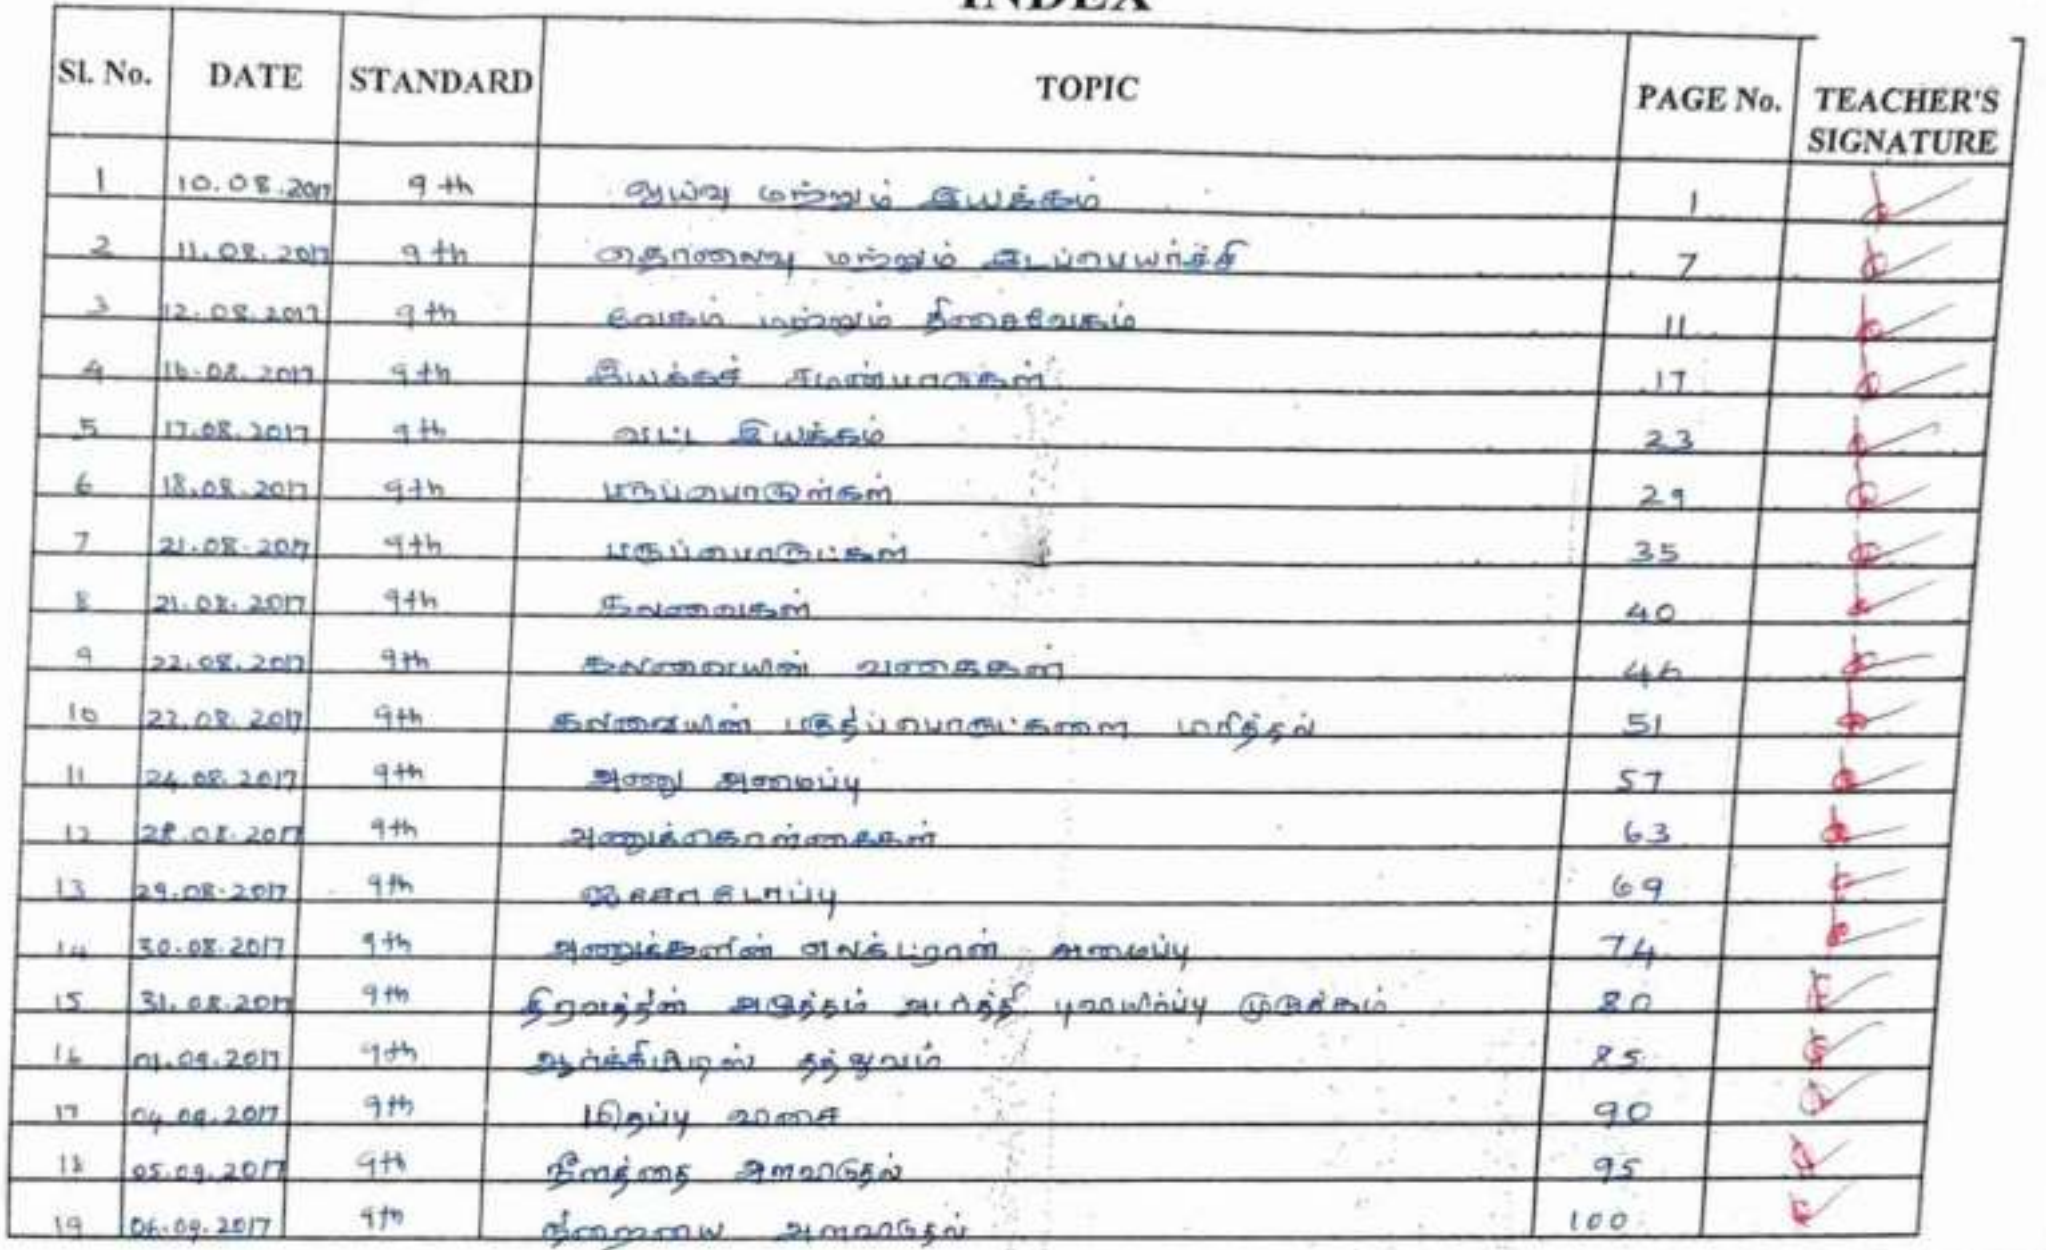 INDEX
Sl. No. DATE STANDARD TOPIC PAGE No. TEACHER'S SIGNATURE
1 10.08.2017 9th ஓய்வு மற்றும் இயக்கம் 1
2 11.08.2017 9th தொலைவு மற்றும் இடப்பெயர்ச்சி 7
3 12.08.2017 9th வேகம் மற்றும் திசைவேகம் 11
4 16.08.2017 9th இயக்கச் சமன்பாடுகள் 17
5 17.08.2017 9th வட்ட இயக்கம் 23
6 18.08.2017 9th பருப்பொருள்கள் 29
7 21.08.2017 9th பருப்பொருட்கள் 35
8 21.08.2017 9th கலவைகள் 40
9 22.08.2017 9th கலவையின் வகைகள் 46
10 22.08.2017 9th கலவையின் பகுதிப்பொருட்களை பிரித்தல் 51
11 24.08.2017 9th அணு அமைப்பு 57
12 28.08.2017 9th அணுக்கொள்கைகள் 63
13 29.08.2017 9th ஐசோடோப்பு 69
14 30.08.2017 9th அணுக்களின் எலக்ட்ரான் அமைப்பு 74
15 31.08.2017 9th திரவத்தின் அழுத்தம் அடர்த்தி புவியீர்ப்பு முடுக்கம் 80
16 01.09.2017 9th ஆர்க்கிமிடிஸ் தத்துவம் 85
17 04.09.2017 9th மிதப்பு விசை 90
18 05.09.2017 9th நீளத்தை அளவிடுதல் 95
19 06.09.2017 9th நிறையை அளவிடுதல் 100